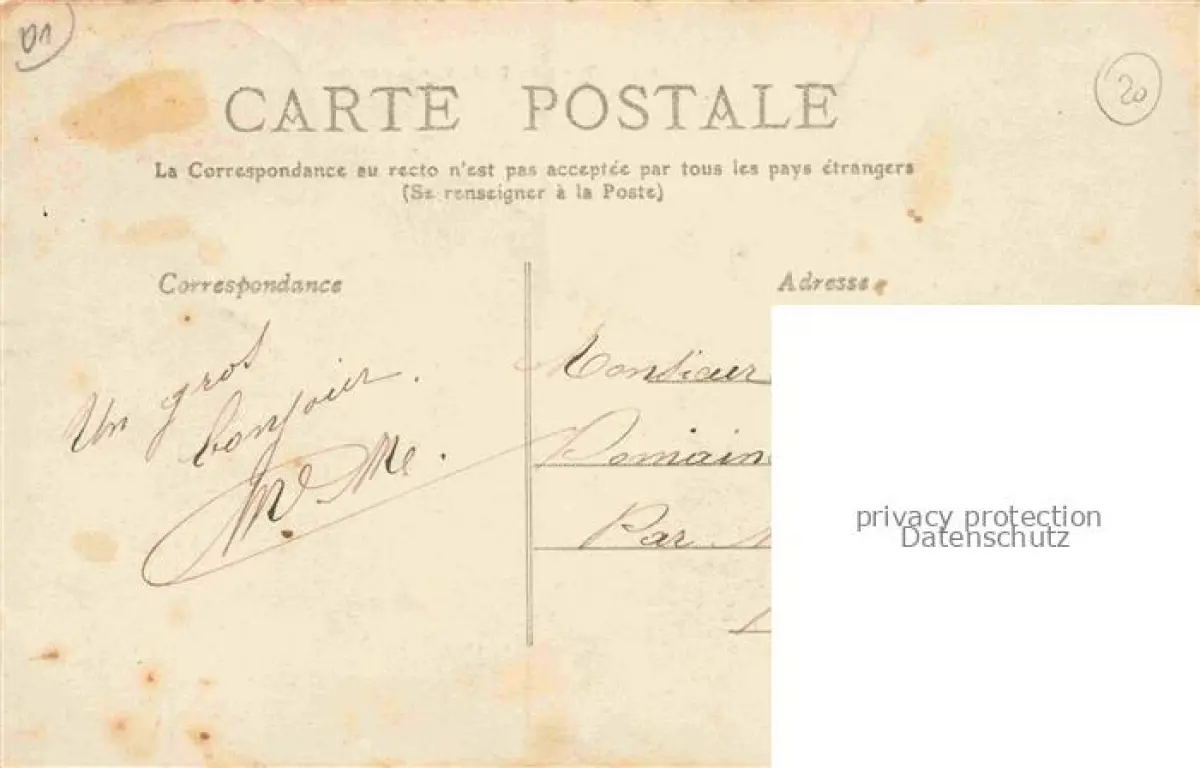 01
20
CARTE POSTALE
La Correspondance au recto n'est pas acceptée par tous les pays étrangers
(Se renseigner à la Poste)
Correspondance
Un gros
bonjour.
Adresse
Monsieur
Domain
Par
privacy protection
Datenschutz